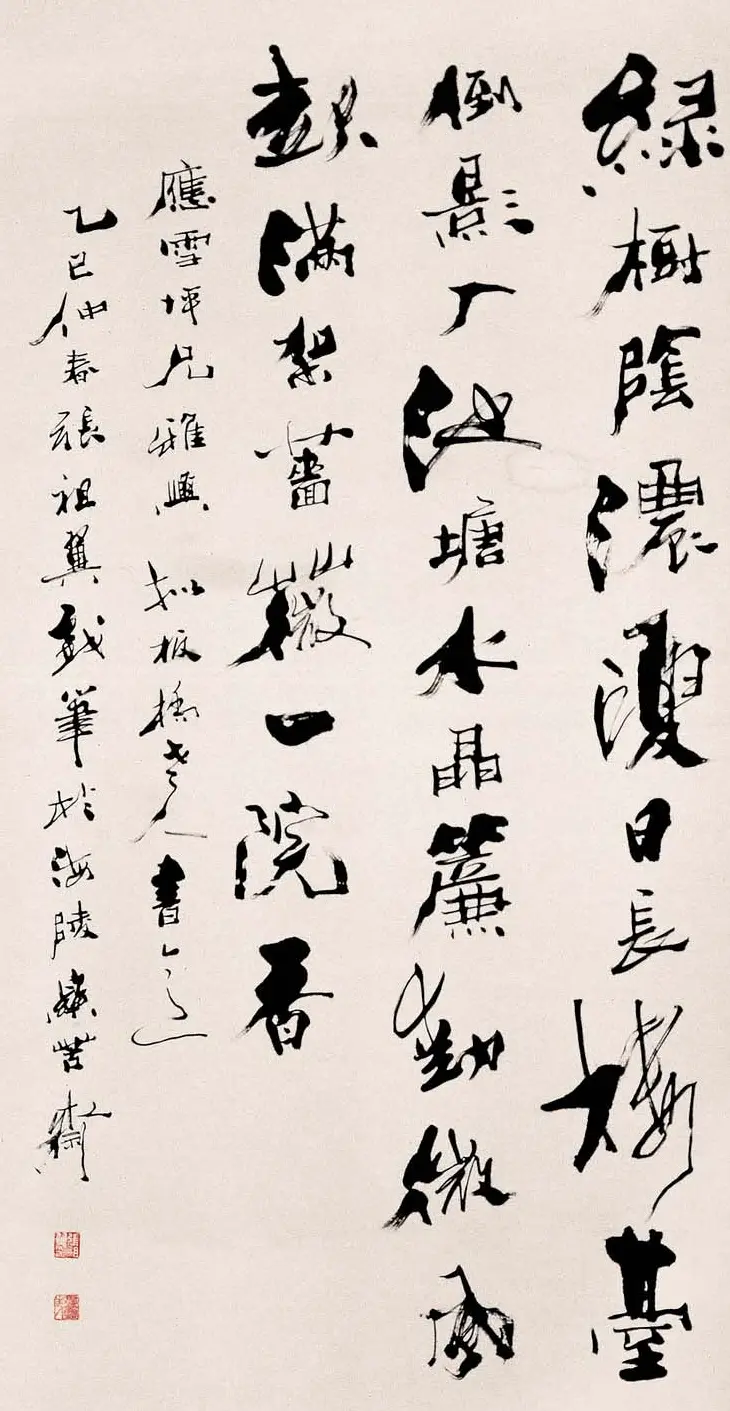 綠樹陰濃夏日長樓臺
倒影入池塘水晶簾動微風
起滿架薔薇一院香
應雪坪兄雅興 拟板橋老人書
乙巳仲春張祖翼戲筆於海陵苦齋